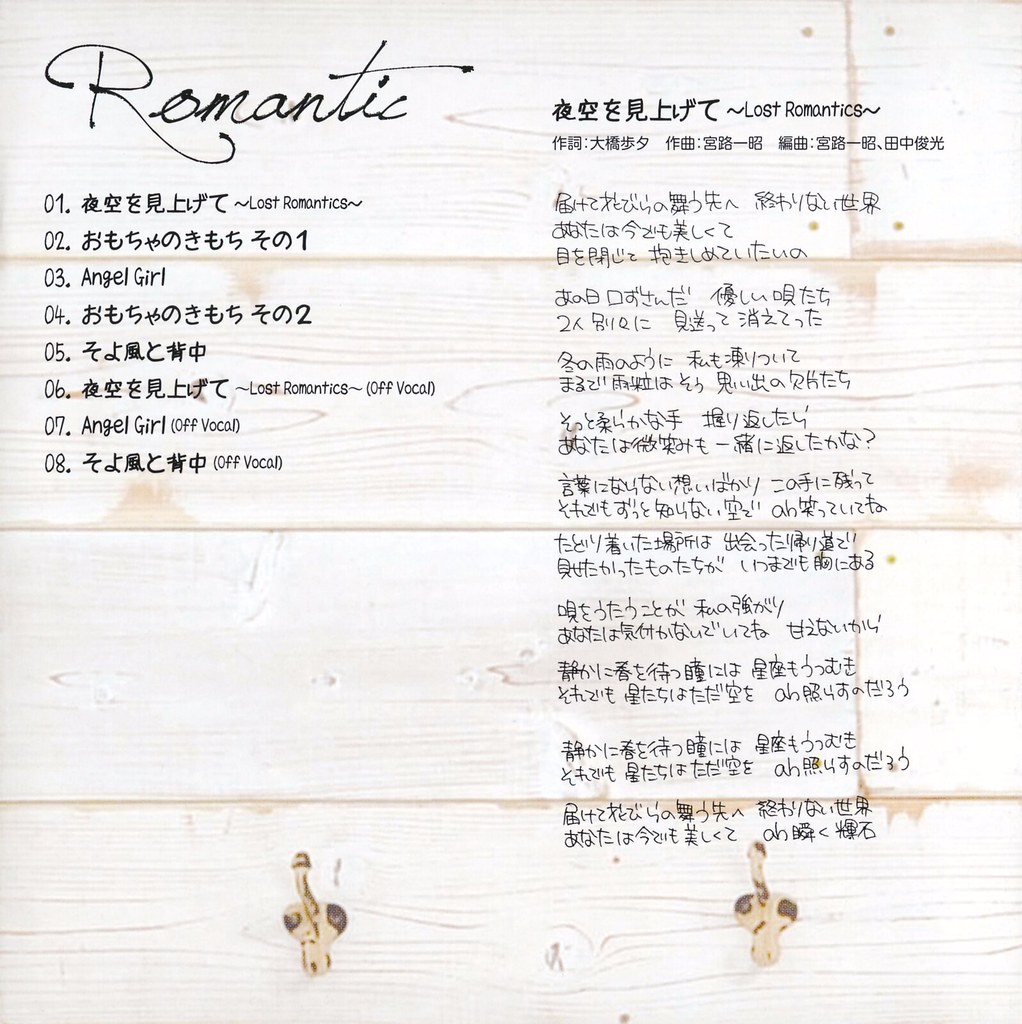 Romantic
01. 夜空を見上げて ～Lost Romantics～
02. おもちゃのきもち その1
03. Angel Girl
04. おもちゃのきもち その2
05. そよ風と背中
06. 夜空を見上げて ～Lost Romantics～ (Off Vocal)
07. Angel Girl (Off Vocal)
08. そよ風と背中 (Off Vocal)
夜空を見上げて ～Lost Romantics～
作詞：大橋歩夕　作曲：宮路一昭　編曲：宮路一昭、田中俊光
届けて花びらの舞う先へ　終わりない世界
あなたは今でも美しくて
目を閉じて 抱きしめていたいの
あの日 口ずさんだ　優しい唄たち
2人 別々に　見送って 消えてった
冬の雨のように 私も凍りついて
まるで雨粒は そう 思い出の欠片たち
そっと柔らかな手　握り返したら
あなたは微笑みも 一緒に返したかな？
言葉にならない想いばかり この手に残って
それでもずっと知らない空で ah笑っていてね
たどり着いた場所は 出会った帰り道で
見せたかったものたちが　いつまでも胸にある
唄をうたうことが 私の強がり
あなたは気付かないでいてね　甘えないから
静かに春を待つ瞳には 星座もうつむき
それでも 星たちはただ空を　ah照らすのだろう
静かに春を待つ瞳には 星座もうつむき
それでも 星たちはただ空を　ah照らすのだろう
届けて花びらの舞う先へ 終わりない世界
あなたは今でも美しくて　ah瞬く輝石